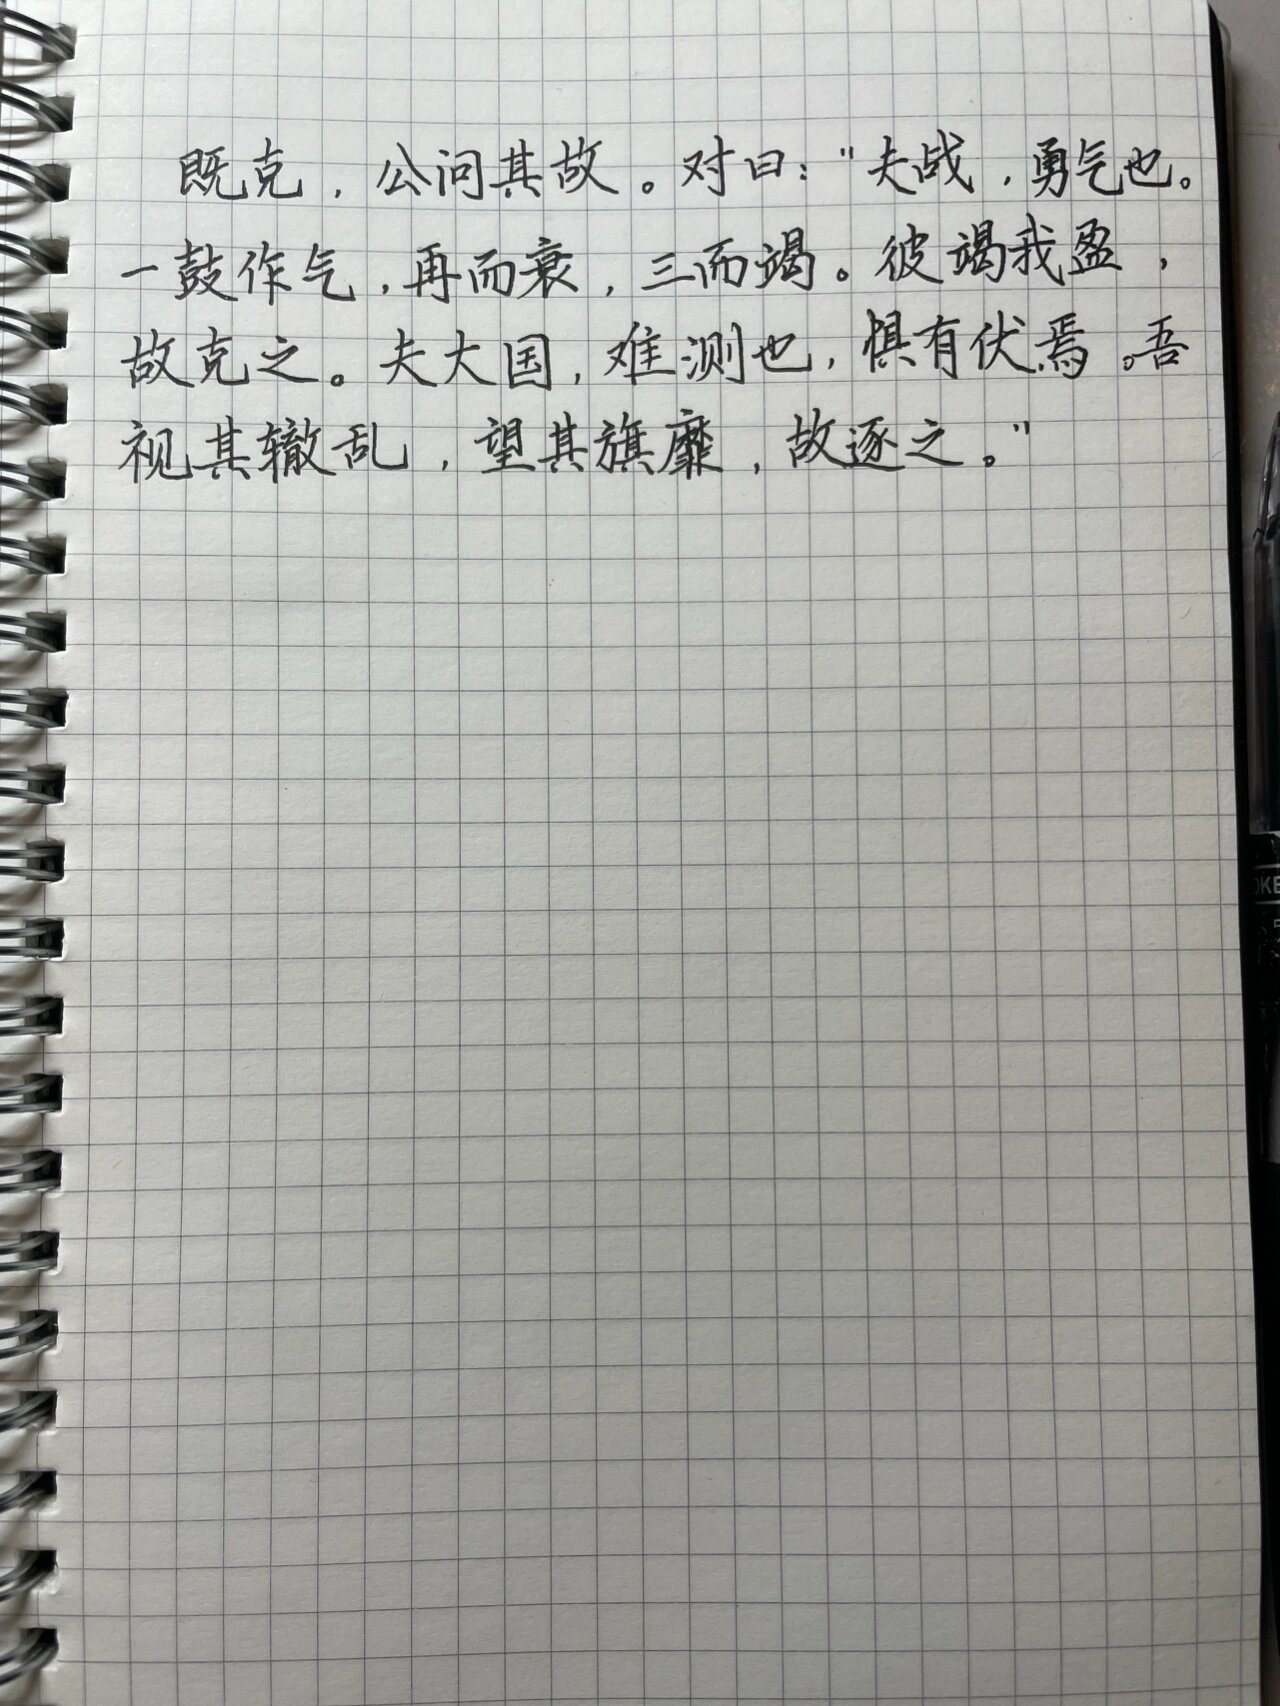 既克，公问其故。对曰："夫战，勇气也。
一鼓作气，再而衰，三而竭。彼竭我盈，
故克之。夫大国，难测也，惧有伏焉。吾
视其辙乱，望其旗靡，故逐之。"